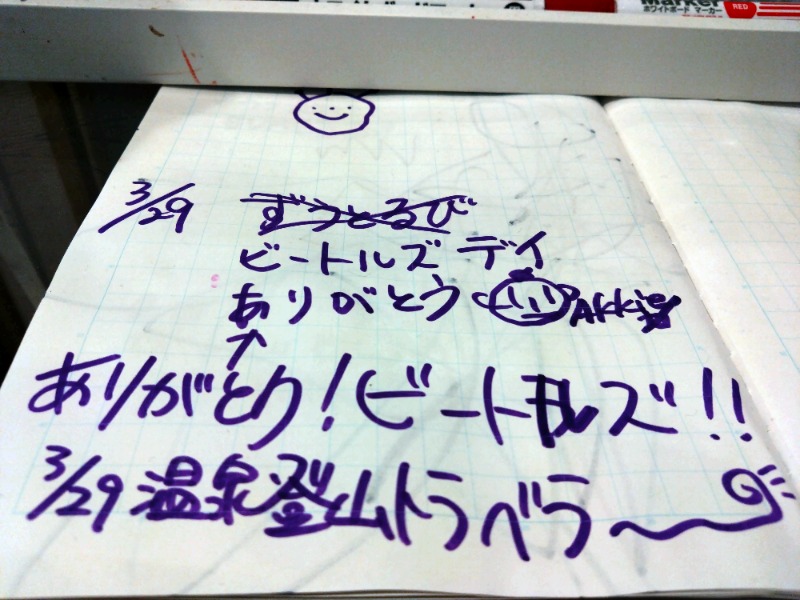 Marker
ホワイトボード マーカー
RED
3/29 ずうとるび
ビートルズ デイ
ありがとう
ありがとう!ビートルズ!!
3/29 温泉登山トラベラ〜